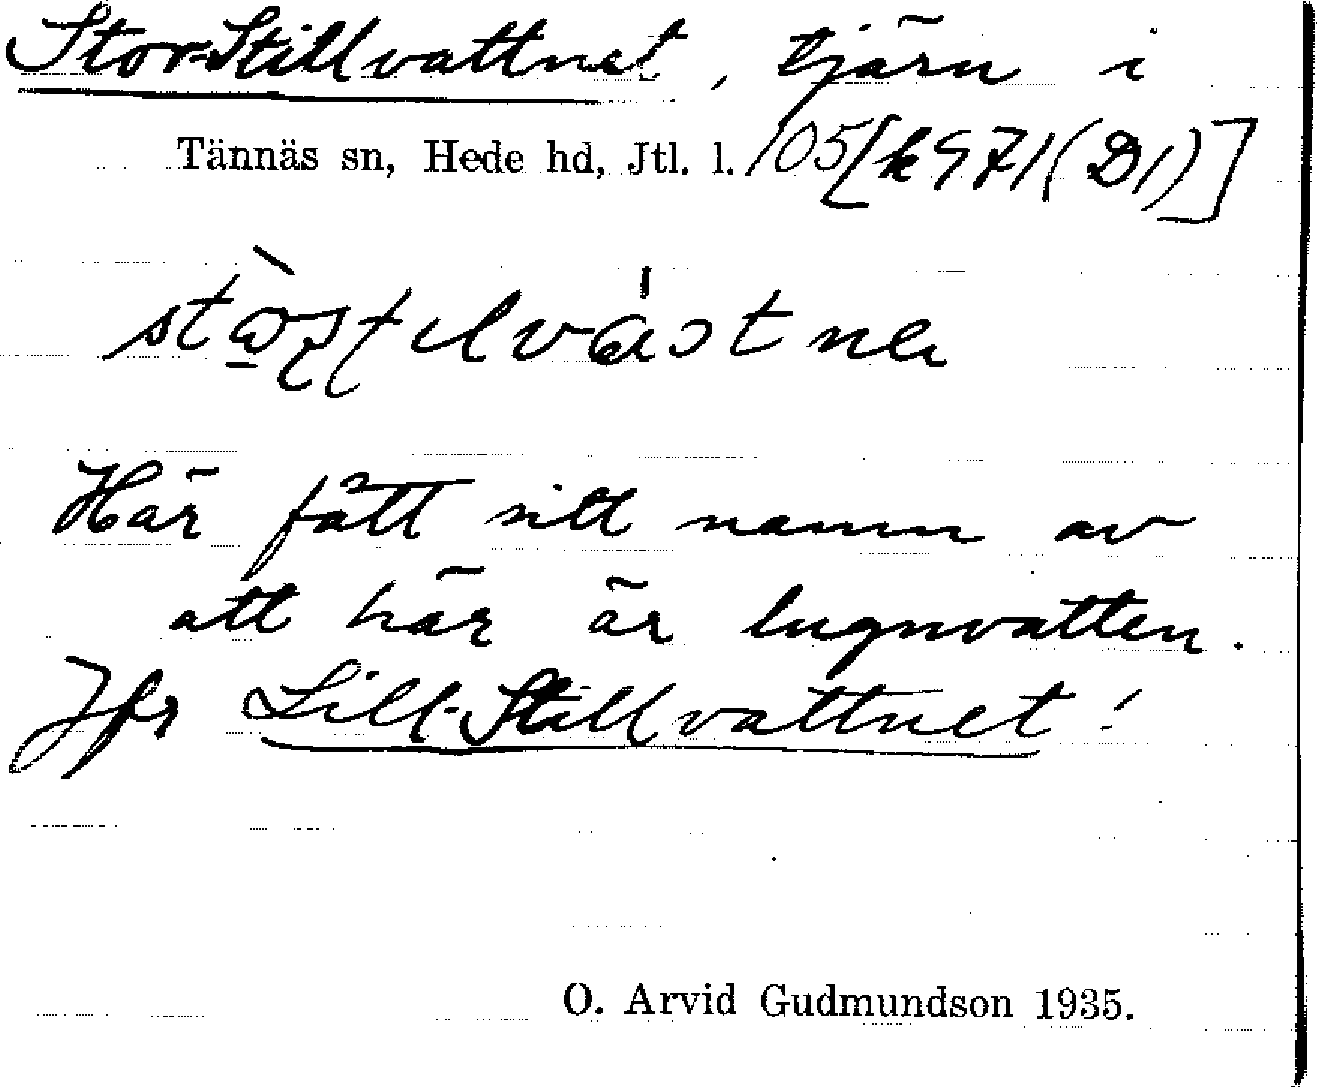 Stor-Stillvattnet, tjärn i
Tännäs sn, Hede hd, Jtl. l. 105[k971(D1)]
Här fått sitt namn av
att här är lugnvatten.
Jfr Lill-Stillvattnet!
O. Arvid Gudmundson 1935.